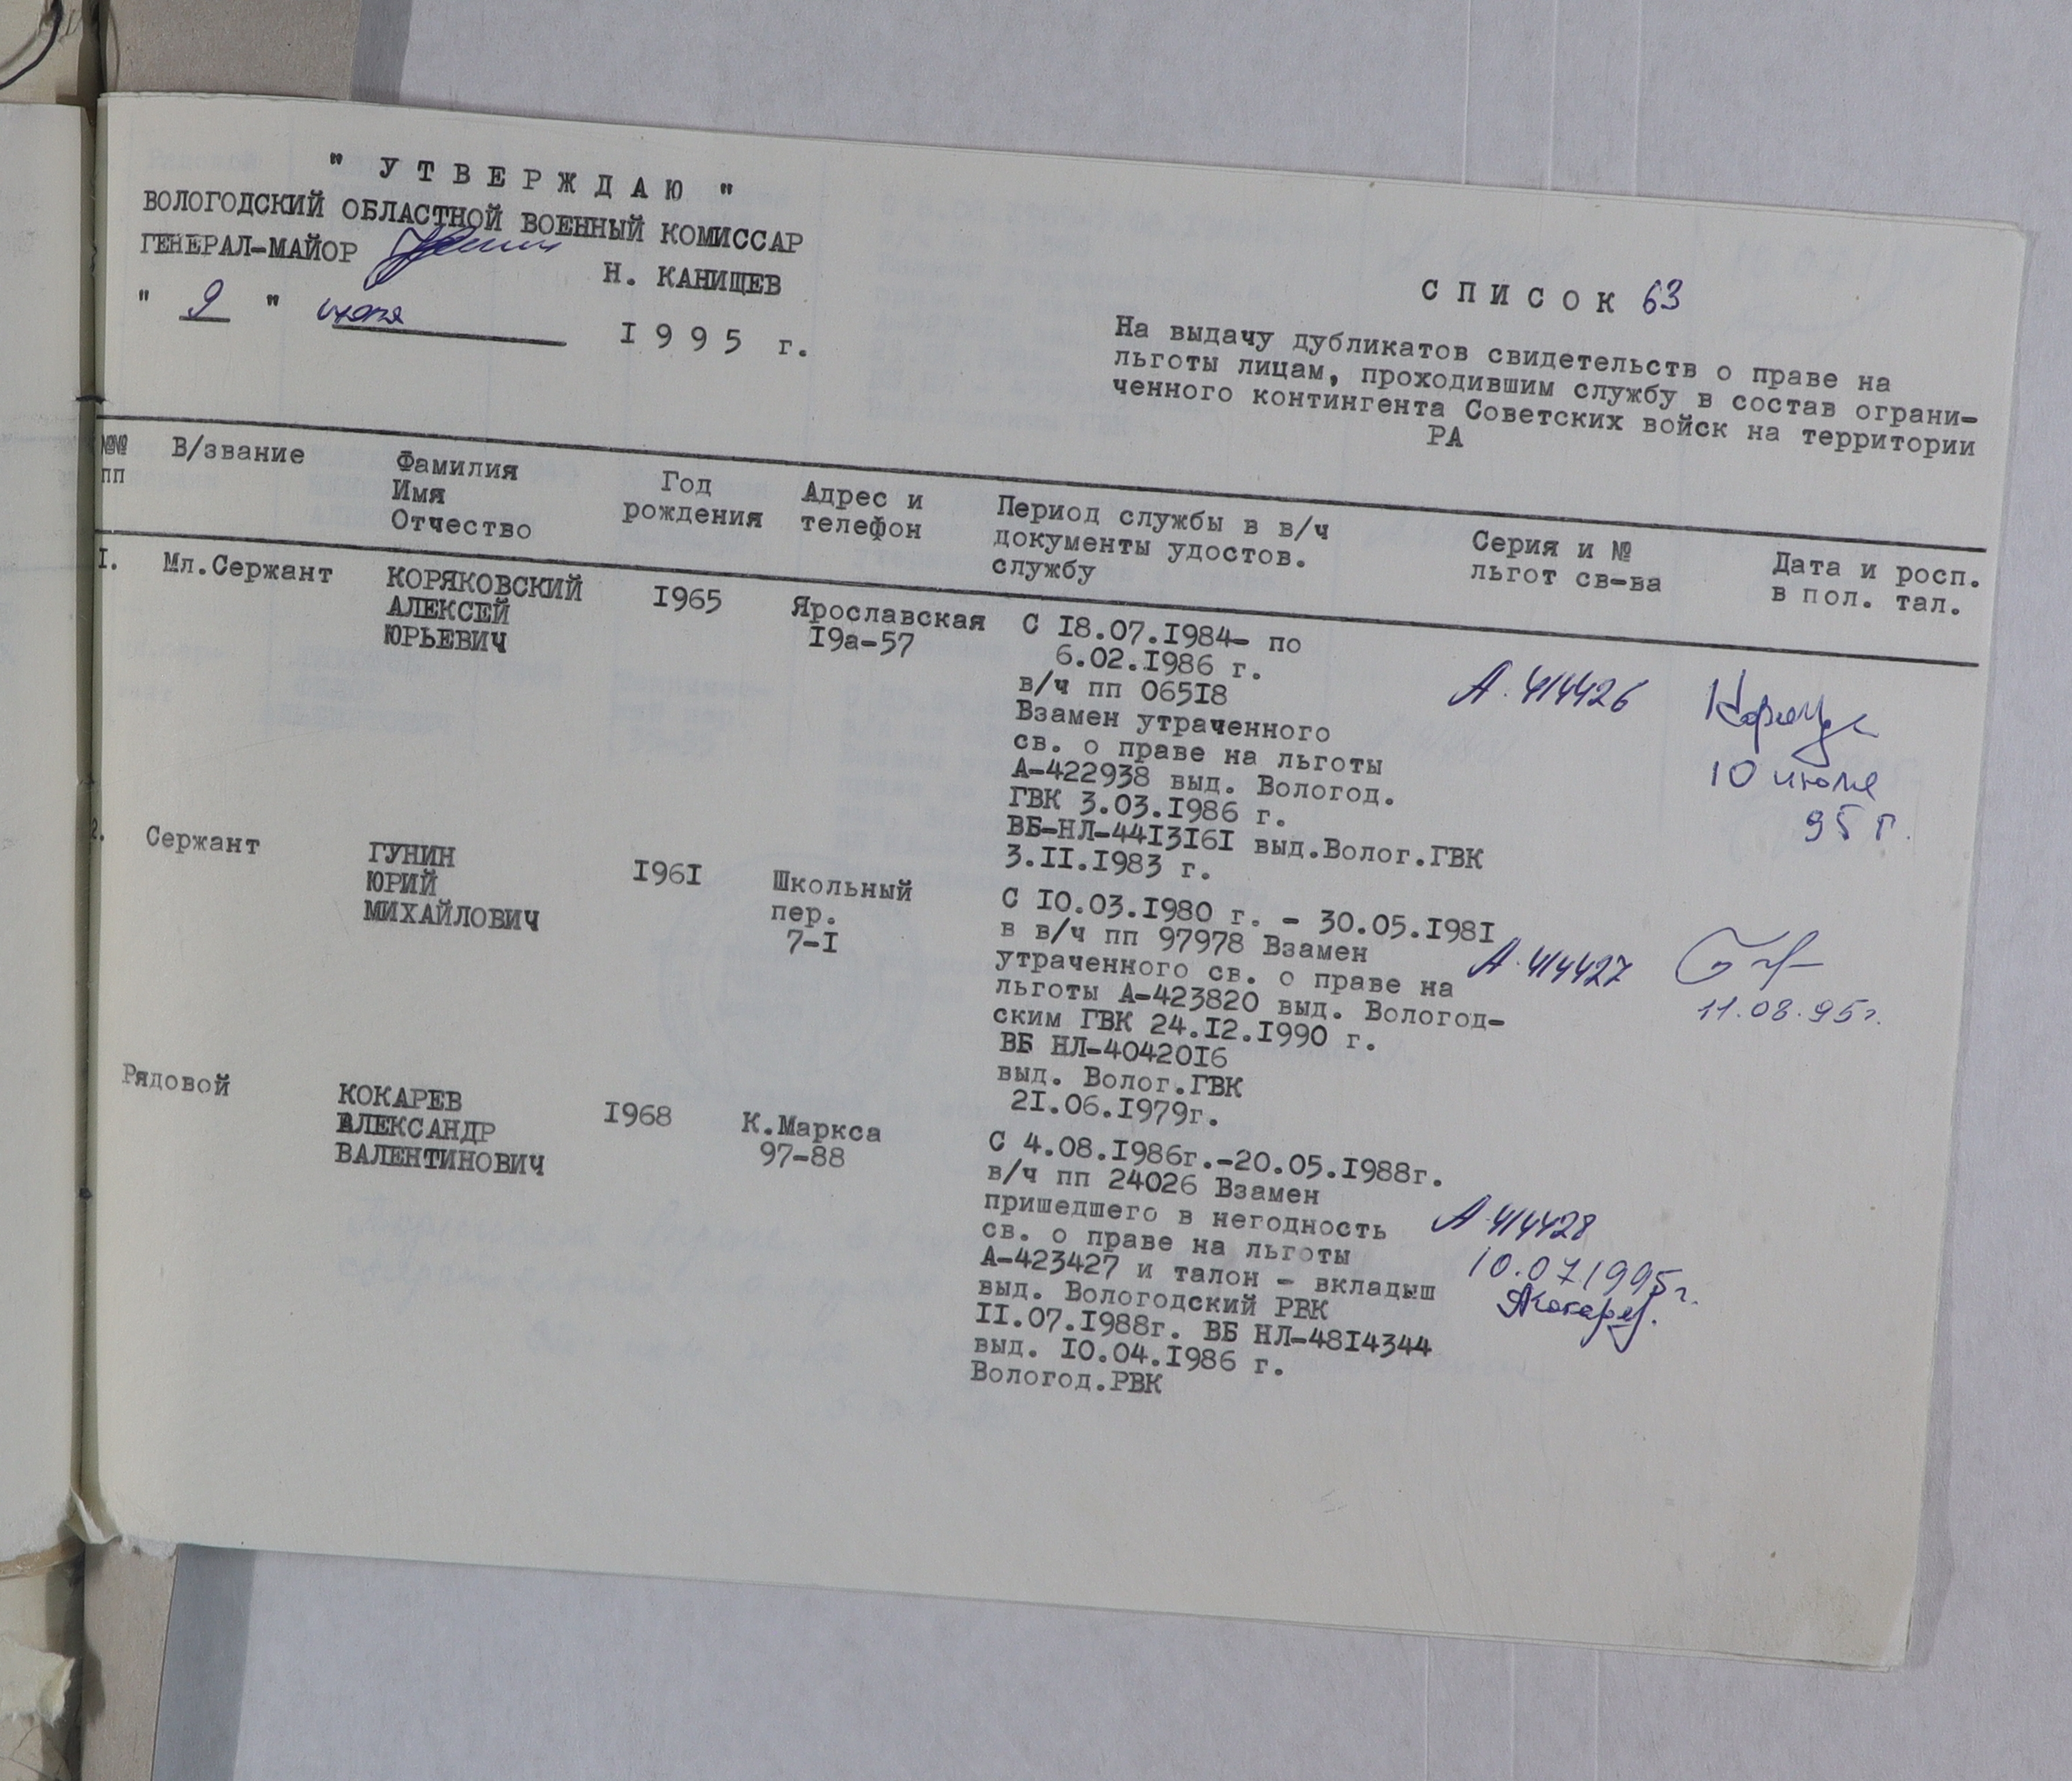 " У Т В Е Р Ж Д А Ю "
ВОЛОГОДСКИЙ ОБЛАСТНОЙ ВОЕННЫЙ КОМИССАР
ГЕНЕРАЛ-МАЙОР Н. КАНИЩЕВ
" 9 " I 9 9 5 г.
С П И С О К 63
На выдачу дубликатов свидетельств о праве на
льготы лицам, проходившим службу в состав ограни-
ченного контингента Советских войск на территории
РА
№№ пп
В/звание
Фамилия
Имя
Отчество
Год
рождения
Адрес и
телефон
Период службы в в/ч
документы удостов.
службу
Серия и №
льгот св-ва
Дата и росп.
в пол. тал.
I.
Мл.Сержант
КОРЯКОВСКИЙ
АЛЕКСЕЙ
ЮРЬЕВИЧ
I965
Ярославская
I9а-57
С I8.07.I984- по
6.02.I986 г.
в/ч пп 065I8
Взамен утраченного
св. о праве на льготы
А-422938 выд. Вологод.
ГВК 3.03.I986 г.
ВБ-НЛ-44I3I6I выд.Волог.ГВК
3.II.I983 г.
А. 414426
10 июля
95 г.
2.
Сержант
ГУНИН
ЮРИЙ
МИХАЙЛОВИЧ
I96I
Школьный
пер.
7-I
С I0.03.I980 г. - 30.05.I98I
в в/ч пп 97978 Взамен
утраченного св. о праве на
льготы А-423820 выд. Вологод-
ским ГВК 24.I2.I990 г.
ВБ НЛ-40420I6
выд. Волог.ГВК
2I.06.I979г.
А. 414427
11.08.95г.
Рядовой
КОКАРЕВ
АЛЕКСАНДР
ВАЛЕНТИНОВИЧ
I968
К.Маркса
97-88
С 4.08.I986г.-20.05.I988г.
в/ч пп 24026 Взамен
пришедшего в негодность
св. о праве на льготы
А-423427 и талон - вкладыш
выд. Вологодский РВК
II.07.I988г. ВБ НЛ-48I4344
выд. I0.04.I986 г.
Вологод.РВК
А 414428
10.07.1995г.